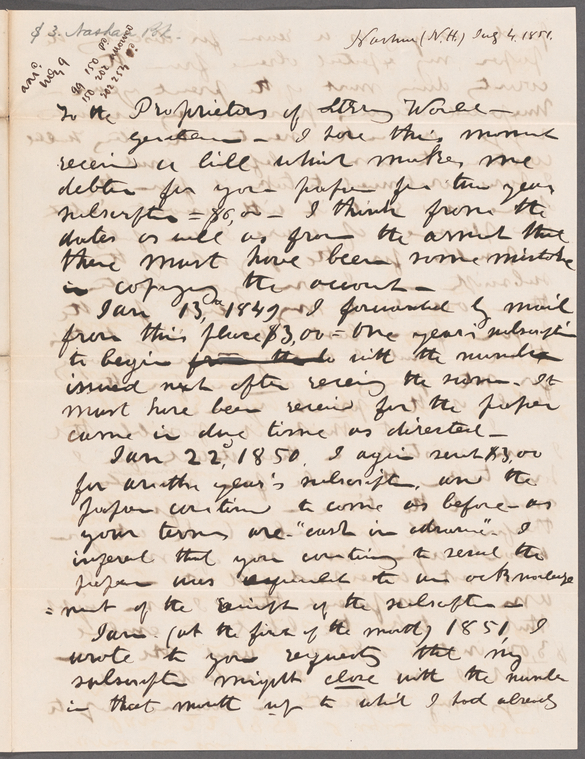 $3. Nashua Pd.
ansd
July 9
99 150 80
150 202
202 252
Nashua (N.H.) July 4. 1851.
To the Proprietors of Literary World –
Gentlemen – I have this moment
received a bill which makes me
debtor for your paper for two years
subscription = $6,00 – I think from the
dates as well as from the amount that
there must have been some mistake
in copying the account –
Jan 13th 1849 I forwarded by mail
from this place $3,00 – One year's subscription
to begin from the with the number
issued next after receiving the same. It
must have been received for the paper
came in due time as directed –
Jan 22d, 1850. I again sent $3,00
for another year's subscription, and the
paper continued to come as before – as
your terms are "cash in advance" I
inferred that your continuing to send the
paper was equivalent to an acknowledge
=ment of the receipt of the subscription –
Jan. (at the first of the month) 1851, I
wrote to you requesting that my
subscription might close with the number
in that month up to which I had already